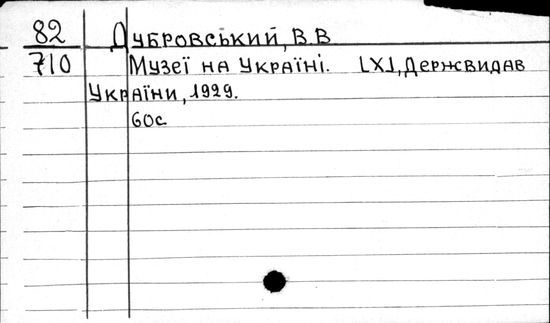 82 Дубровський, В.В
710 Музеї на Україні. [Х], Держвидав
України, 1929.
60с